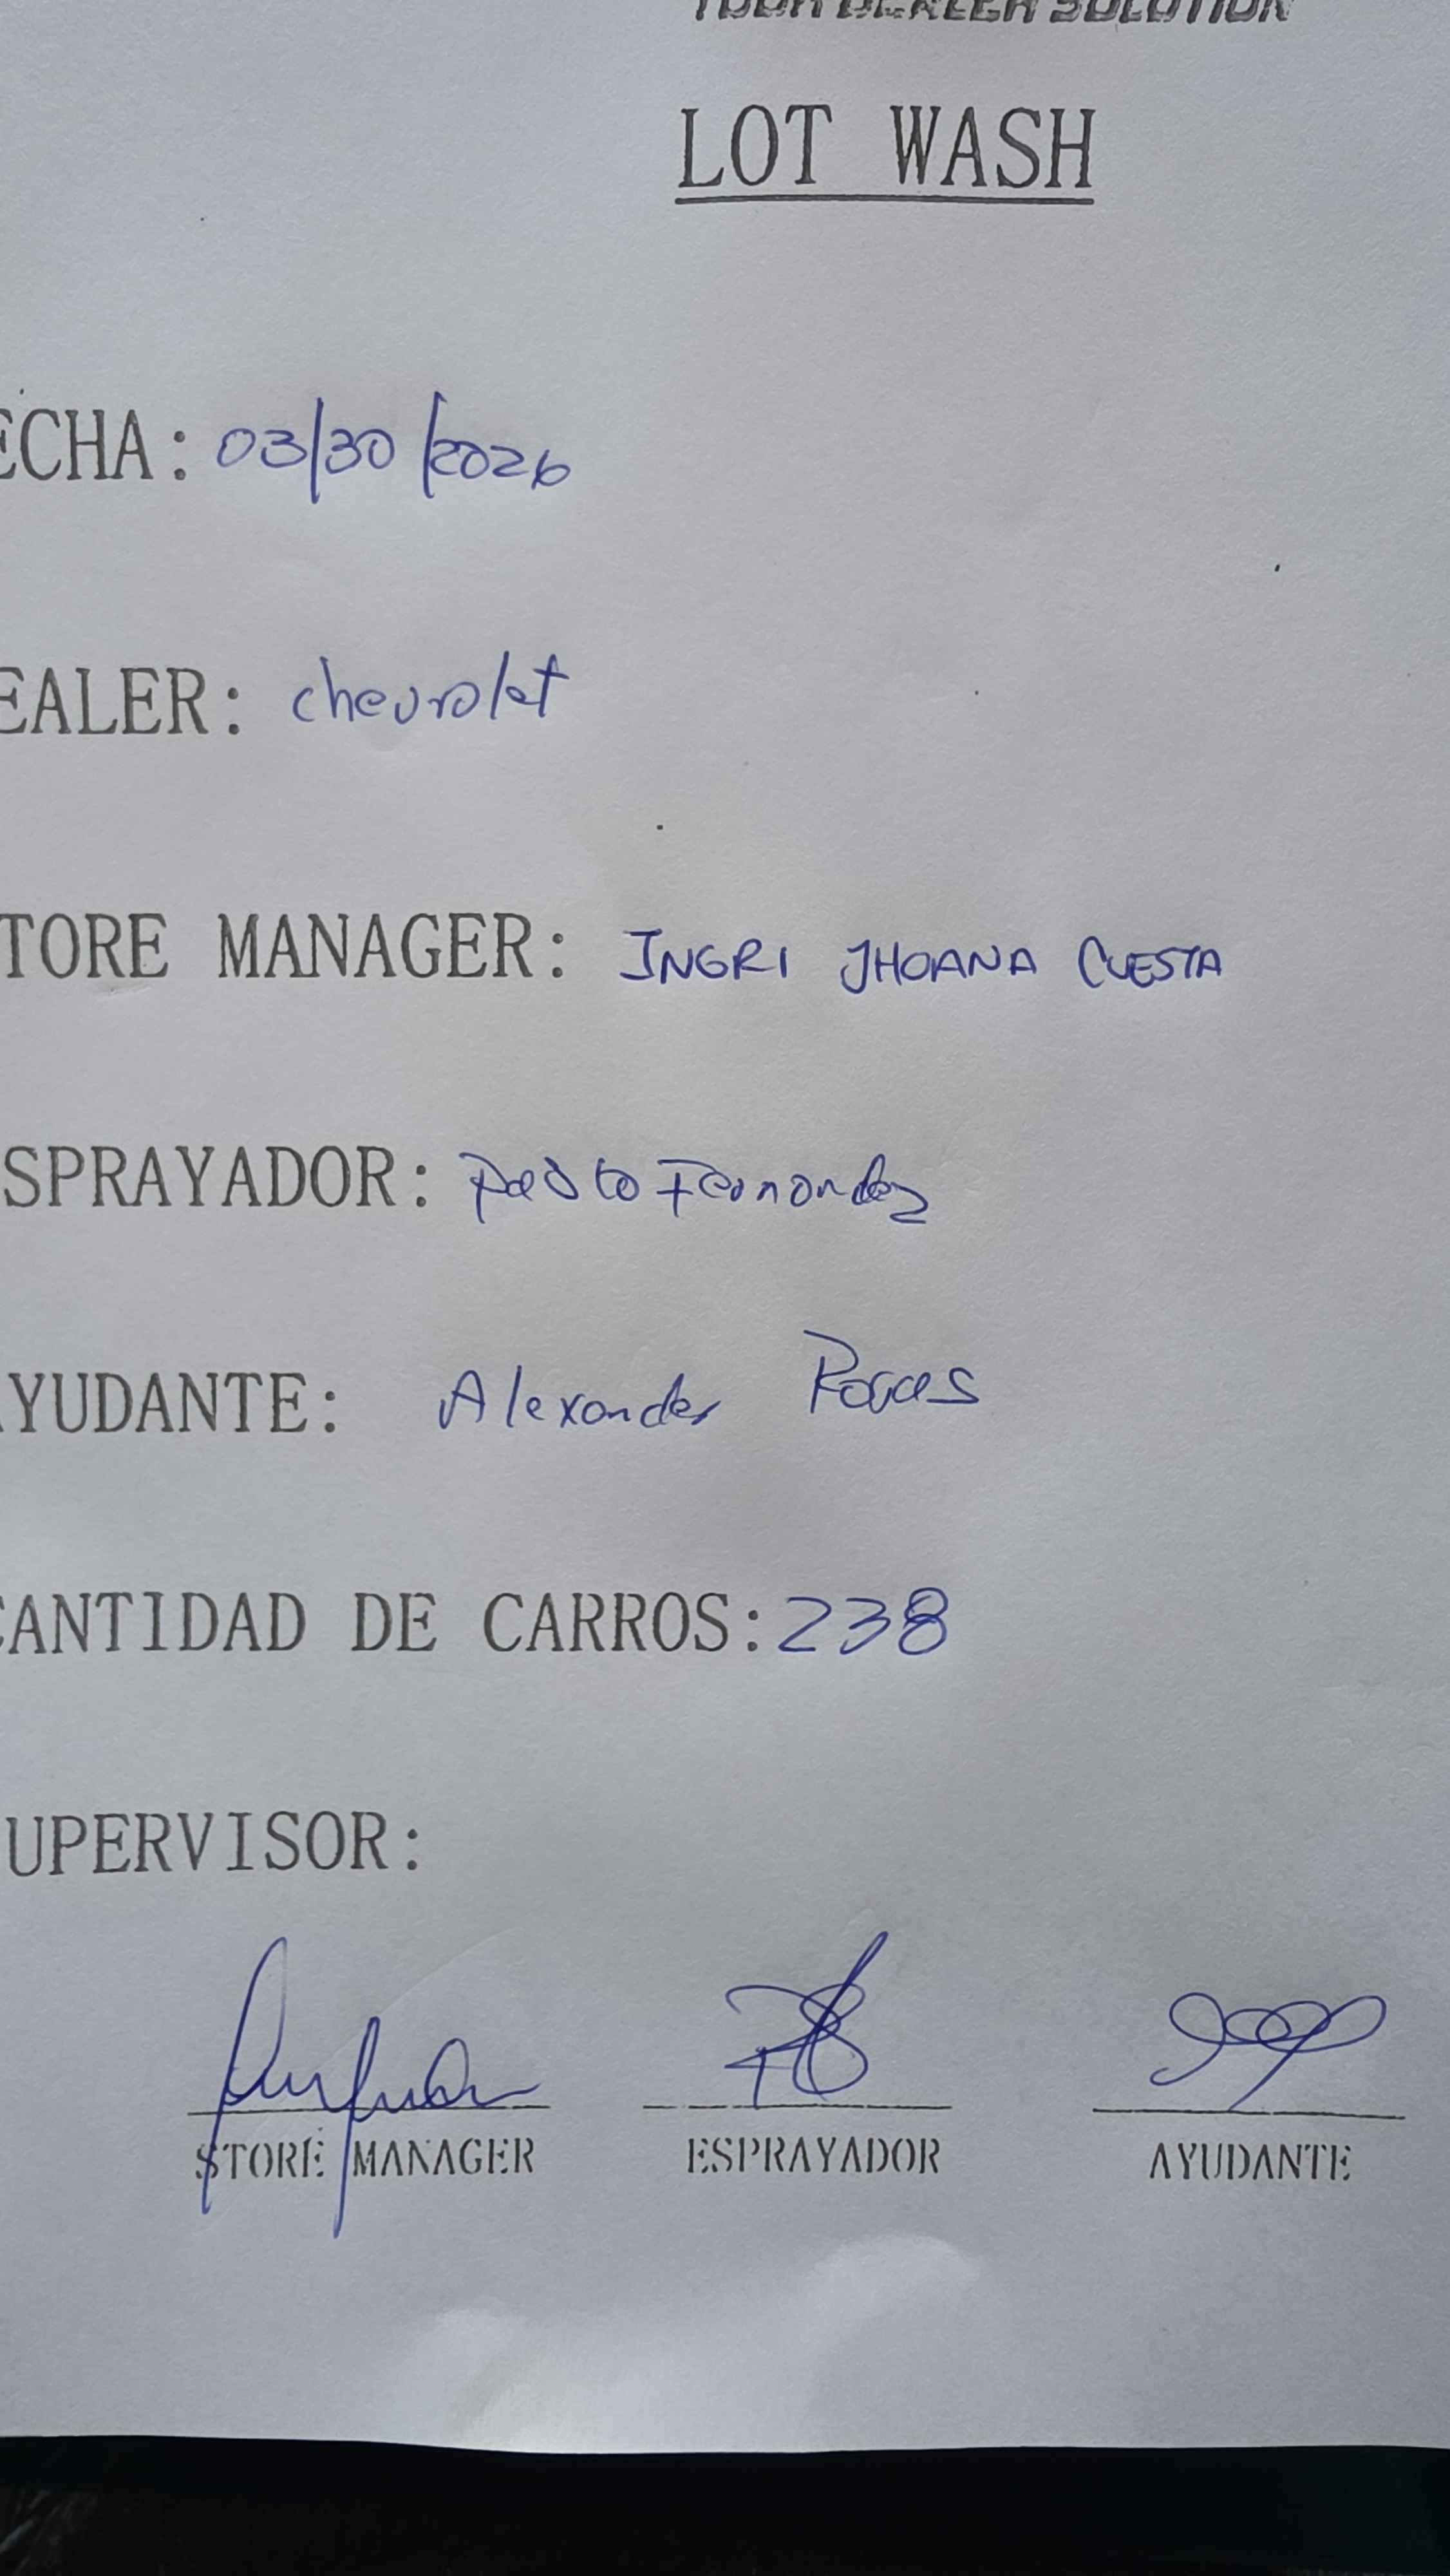 YOUR DEALER SOLUTION
LOT WASH
ECHA: 03/30/2026
EALER: chevrolet
TORE MANAGER: INGRI JHOANA CUESTA
SPRAYADOR: Pablo Fernandez
YUDANTE: Alexander
CANTIDAD DE CARROS: 238
UPERVISOR:
STORE MANAGER ESPRAYADOR AYUDANTE